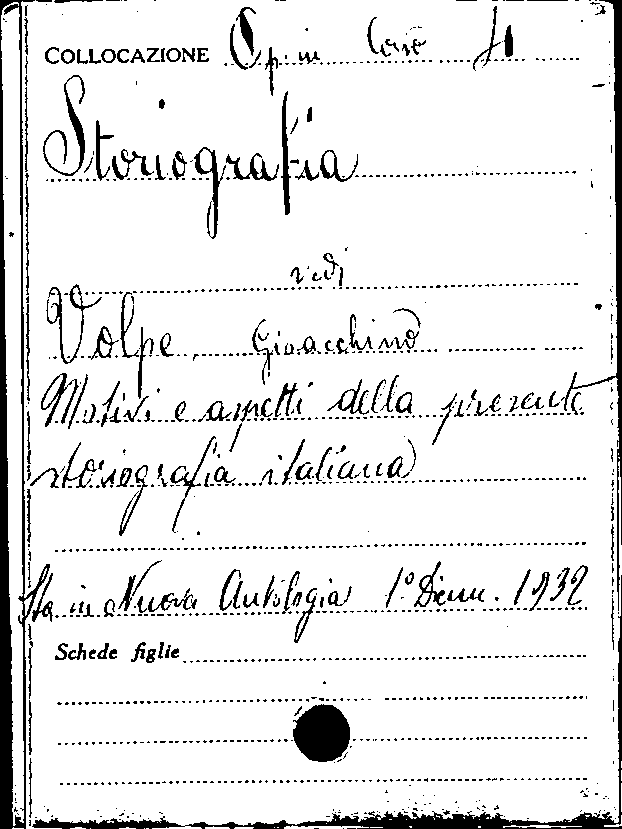 COLLOCAZIONE Op. in
Storiografia
vedi
Volpe, Gioacchino
Motivi e aspetti della presente
storiografia italiana
Sta in Nuova Antologia 1° Dicem. 1932
Schede figlie